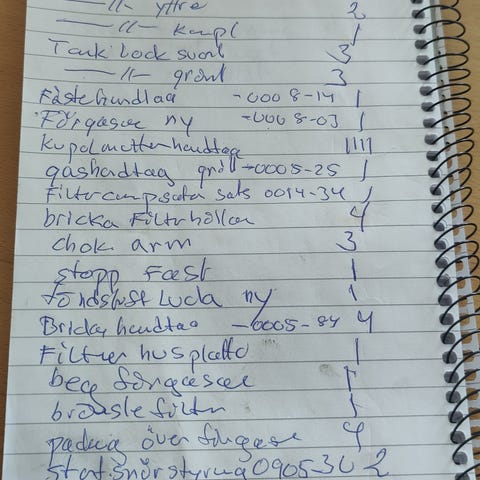 —— 11— yttre 2
—— 11— kompl 1
Tank lock svart 3
—— 11— grönt 3
Fäste handtag -0008-14 1
Förgasare ny -0008-03 1
Kupolmutter handtag 1111
gashandtag grå -0005-25 1
Filter sats 0014-34 1
bricka Filterhållare 4
chok arm 3
stopp Fast 1
Tändstift Lucka ny 1
Bricka handtag -0005-84 4
Filter husplatta 1
beg förgasare 1
bränsle filter 1
packnig över förgasare 4
start snörstyrning 090530 2